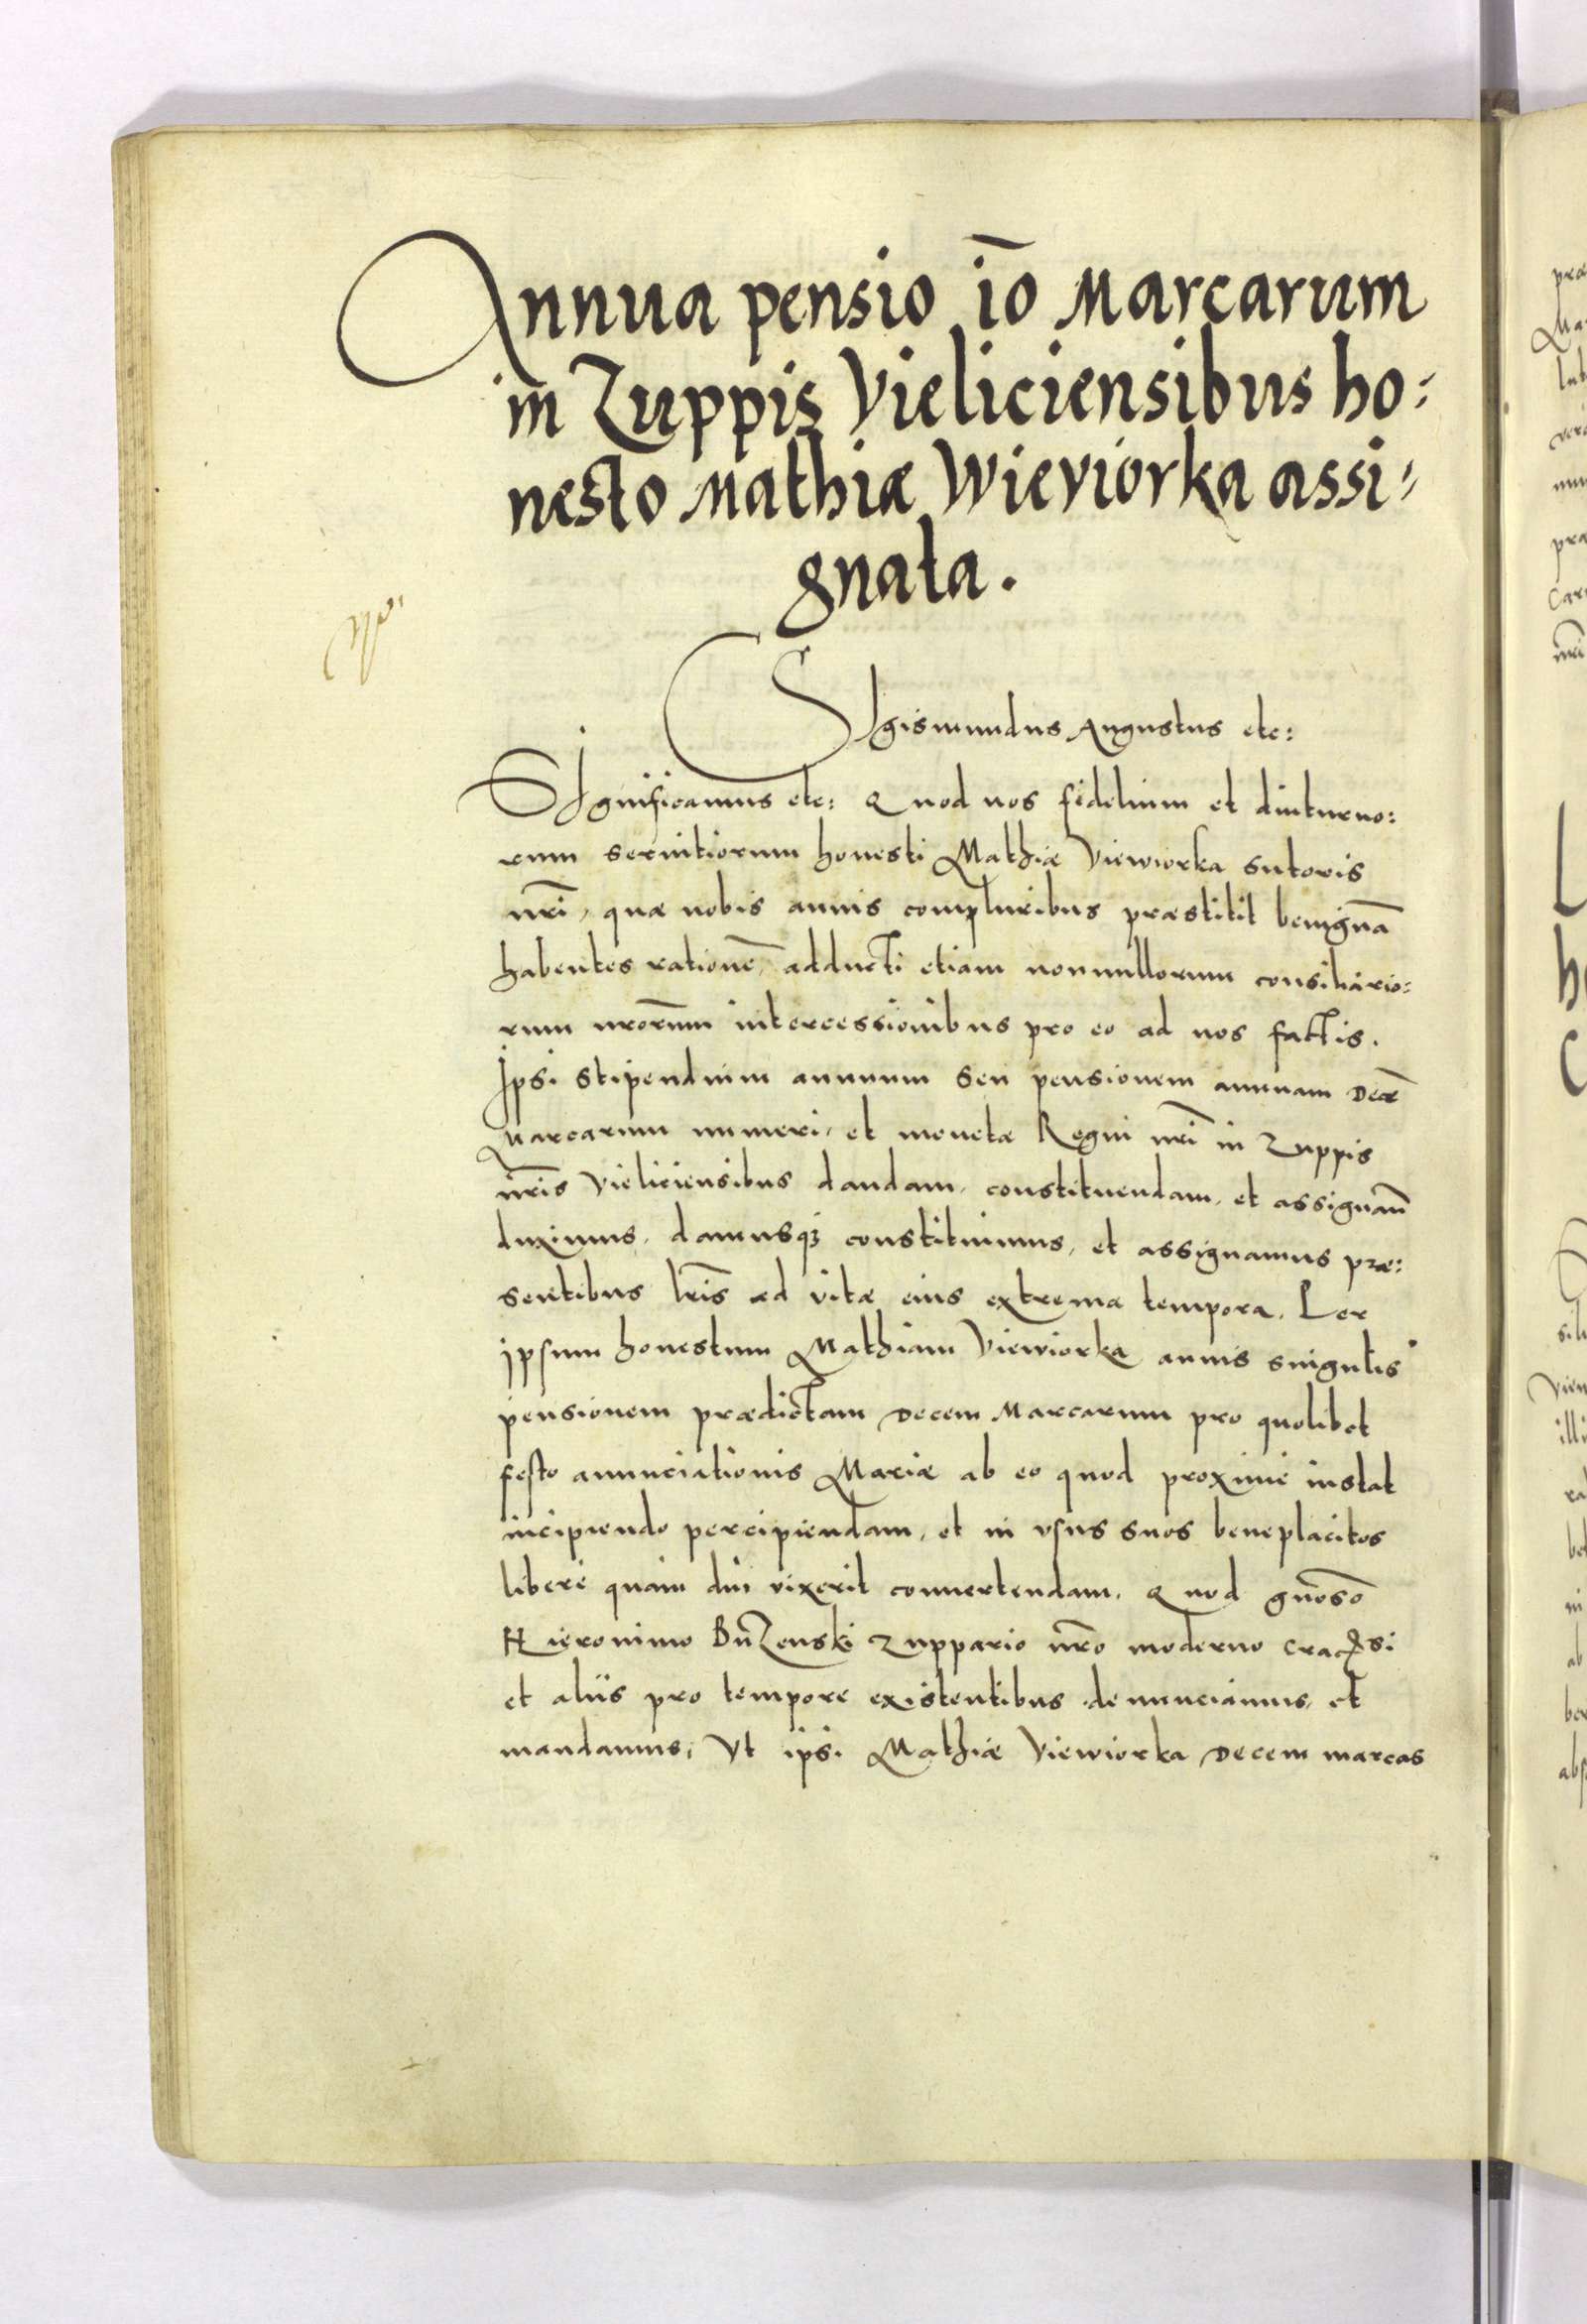 Annua pensio iō Marcarum
in Zuppis Vieliciensibus ho:
nesto Mathiæ Wieviorka assi:
gnata.
SIgismundus Augustus etc:
SIgnificamus etc: Quod nos fidelium et diuturno:
rum seruitiorum honesti Mathiæ Viewiorka sutoris
nrī, quæ nobis annis compluribus præstitit benignā
habentes rationē, adducti etiam nonnullorum consiliario:
rum nrorūm intercessionibus pro eo ad nos factis.
Ipsi stipendium annuum seu pensionem annuam decē
Marcarum numeri, et monetæ Regni nrī in Zuppis
nrīs Vieliciensibus dandam, constituendam, et assignān
duximus, damusqꝫ constituimus, et assignamus præ:
sentibus lrīs ad vitæ eius extrema tempora. Per
ipsum honestum Mathiam Viewiorka annis singulis
pensionem prædictam decem Marcarum pro quolibet
festo annunciationis Mariæ ab eo quod proxime instat
incipiendo percipiendam, et in vsus suos beneplacitos
libere quam diu vixerit conuertendam. Quod gnōsō
Hieronimo Buzenski Zuppario nrō moderno
et aliis pro tempore existentibus denunciamus, et
mandamus, Vt ipsi Mathiæ Viewiorka decem marcas
præ